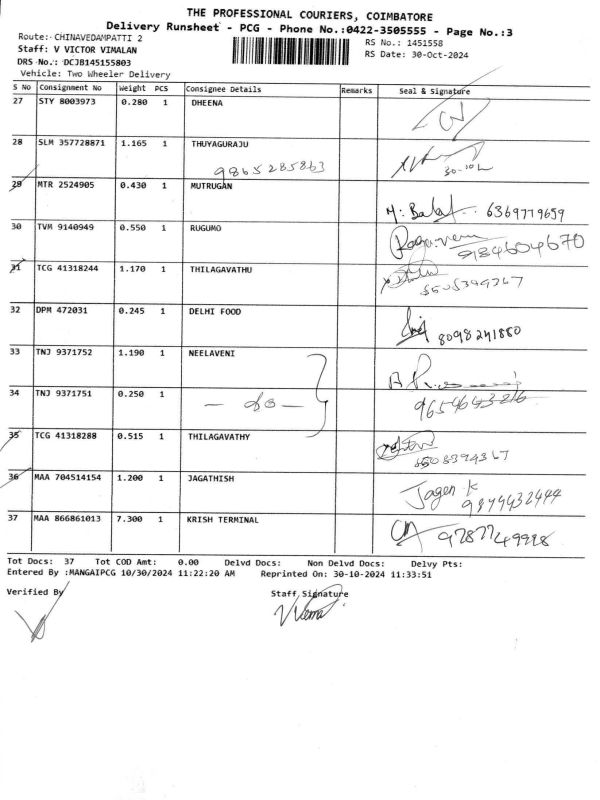 THE PROFESSIONAL COURIERS, COIMBATORE
Delivery Runsheet - PCG - Phone No.:0422-3505555 - Page No.:3
Route: CHINAVEDAMPATTI 2
RS No.: 1451558
Staff: V VICTOR VIMALAN
RS Date: 30-Oct-2024
DRS No.: DCJB145155803
Vehicle: Two Wheeler Delivery
S No Consignment No Weight PCS Consignee Details Remarks Seal & Signature
27 STY 8003973 0.280 1 DHEENA
28 SLM 357728871 1.165 1 THUYAGURAJU
9865285863 30-10
29 MTR 2524905 0.430 1 MUTRUGAN
M: Balaf 6369779659
30 TVM 9140949 0.550 1 RUGUMO
9384604670
31 TCG 41318244 1.170 1 THILAGAVATHU
32 DPM 472031 0.245 1 DELHI FOOD
8098241880
33 TNJ 9371752 1.190 1 NEELAVENI
34 TNJ 9371751 0.250 1
9654643216
35 TCG 41318288 0.515 1 THILAGAVATHY
36 MAA 704514154 1.200 1 JAGATHISH
Jagen K
9944432444
37 MAA 866861013 7.300 1 KRISH TERMINAL
9787749998
Tot Docs: 37 Tot COD Amt: 0.00 Delvd Docs: Non Delvd Docs: Delvy Pts:
Entered By :MANGAIPCG 10/30/2024 11:22:20 AM Reprinted On: 30-10-2024 11:33:51
Verified By Staff Signature